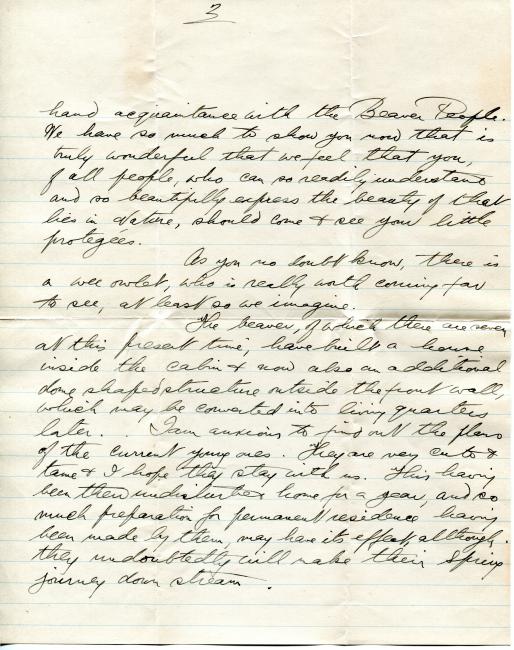 3
hand acquaintance with the Beaver People.
We have so much to show you now that is
truly wonderful that we feel that you,
of all people, who can so readily understand
and so beautifully express the beauty of that
lies in Nature, should come & see your little
protegées.
As you no doubt know, there is
a wee owlet, who is really worth coming far
to see, at least so we imagine.
The beaver, of which there are seven
at this present time, have built a house
inside the cabin & now also an additional
dome shaped structure outside the front wall,
which may be converted into living quarters
later. . I am anxious to find out the plans
of the current young ones. They are very cute &
tame & I hope they stay with us. This having
been their undisturbed home for a year, and so
much preparation for permanent residence having
been made by them, may have its effect, although
they undoubtedly will make their Spring
journey down stream.